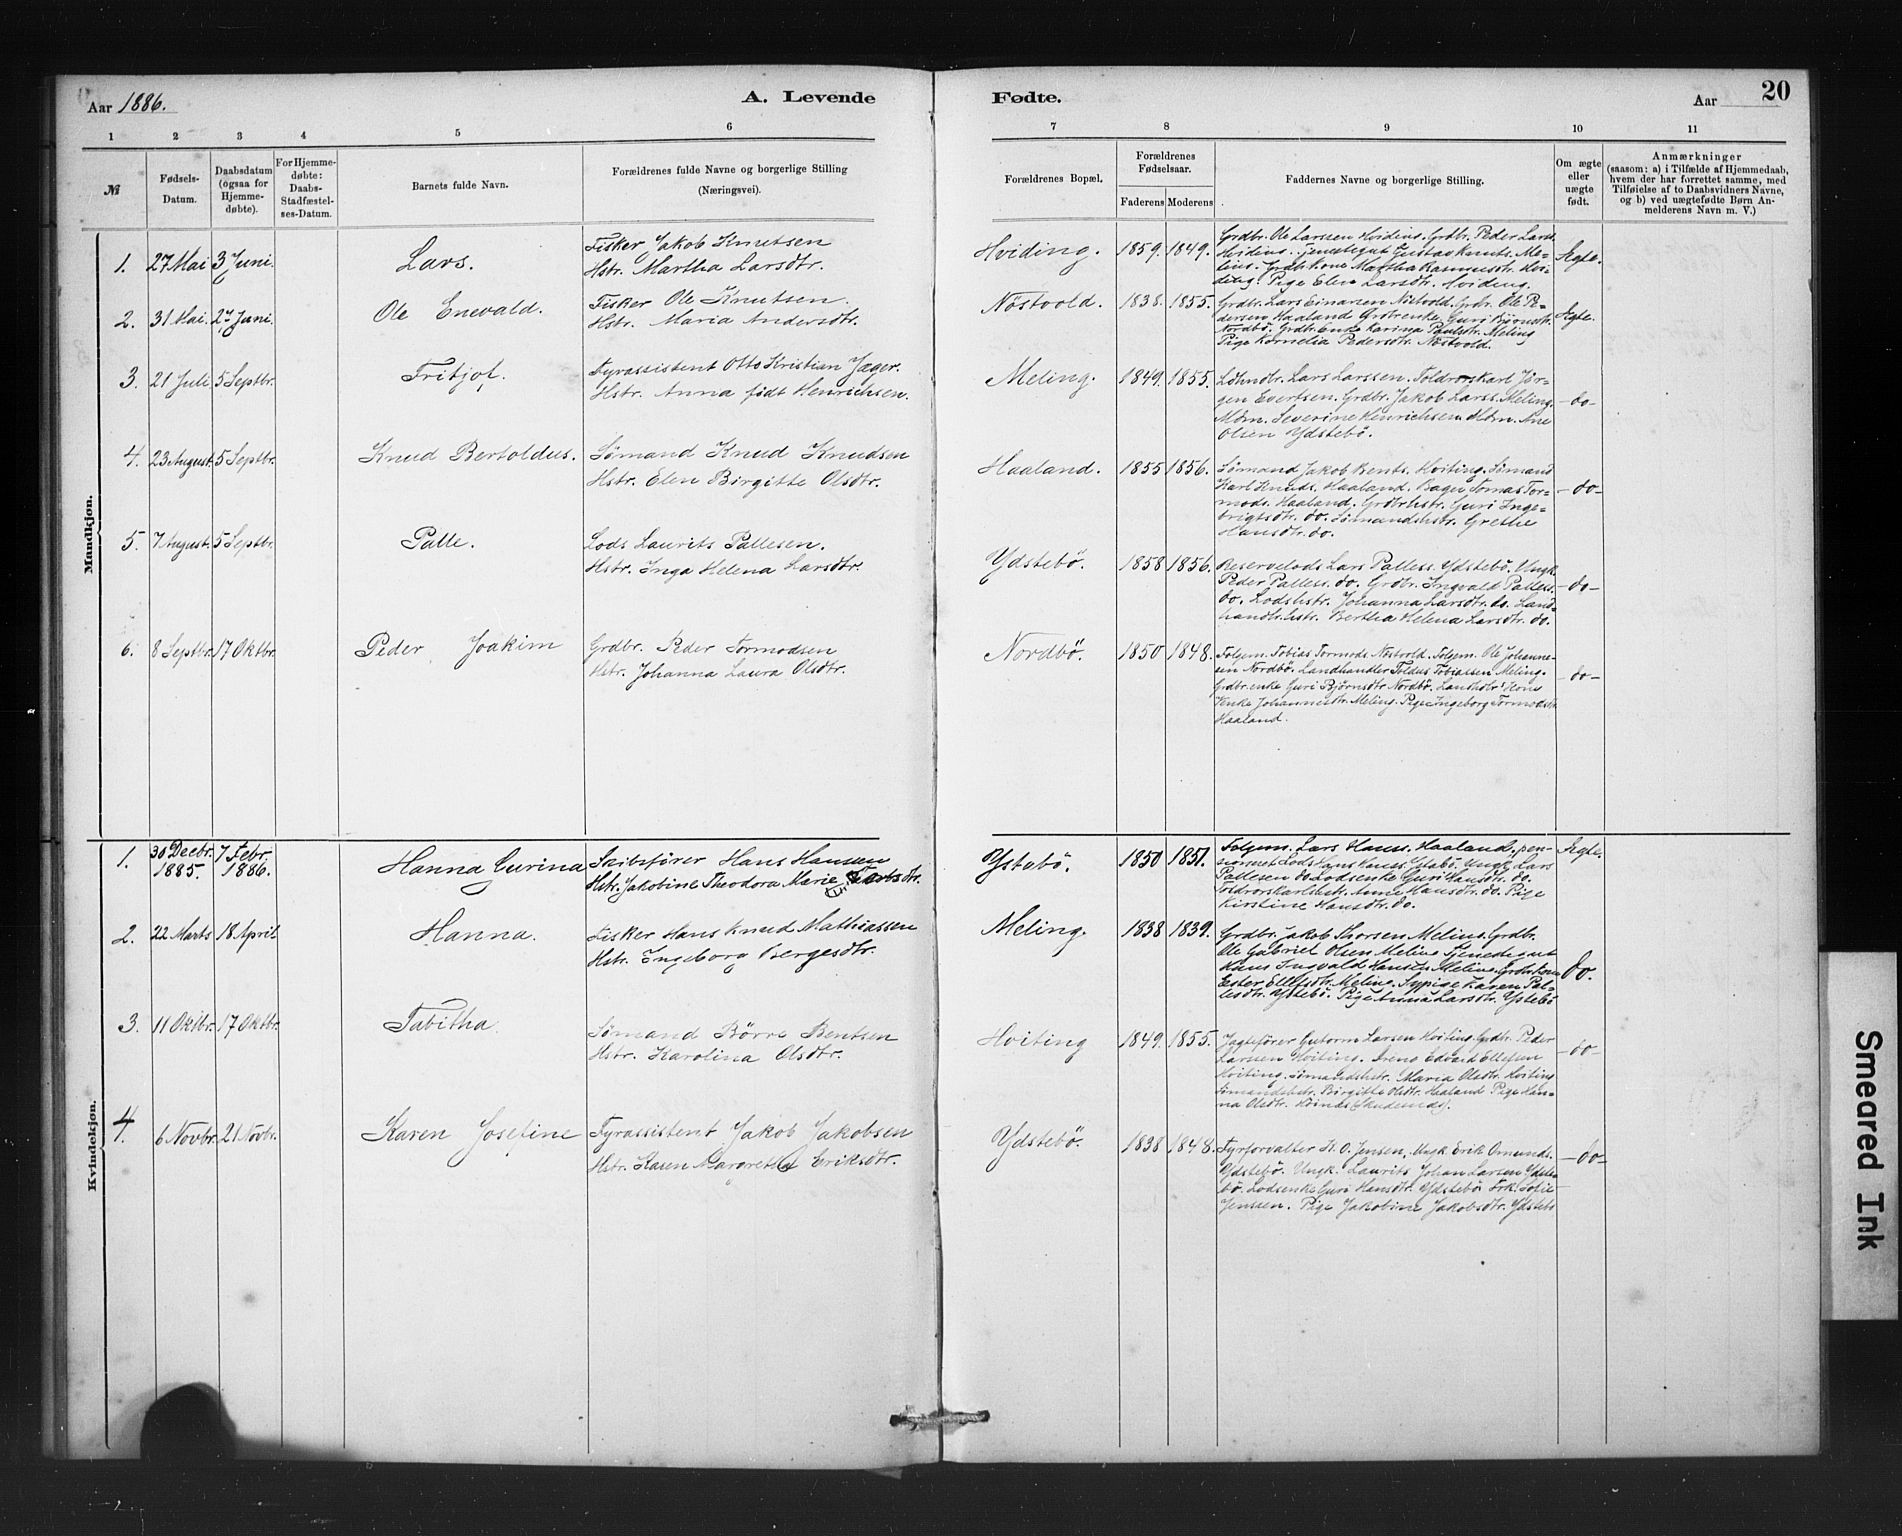 Aar 1886.
A. Levende
Fødte.
Aar
20
1 2 3 4 5 6 7 8 9 10 11
№
Fødsels-
Datum.
Daabsdatum
(ogsaa for
Hjemme-
døbte).
For Hjemme-
døbte:
Daabs-
Stadfæstel-
ses-Datum.
Barnets fulde Navn.
Forældrenes fulde Navne og borgerlige Stilling
(Næringsvei).
Forældrenes Bopæl.
Forældrenes
Fødselsaar.
Faderens
Moderens
Faddernes Navne og borgerlige Stilling.
Om ægte
eller
uægte
født.
Anmærkninger
(saasom: a) i Tilfælde af Hjemmedaab,
hvem der har forrettet samme, med
Tilføielse af to Daabsvidners Navne,
og b) ved uægtefødte Børn An-
melderens Navn m. V.)
Mandkjøn.
1. 27 Mai 3 Juni. Lars.
Fisker Jakob Knutsen
Hstr. Martha Larsdtr.
Hviding. 1859. 1849.
Grdbr. Ole Larssen Hviding. Grdbr. Peder Larss.
Hviding. Tjenestegut Gustav Knuts. Me-
ling. Grdbr.kone Martha Rasmusdtr. Hvi-
ding. Pige Elen Larsdtr. Hviding.
Ægte.
2. 31 Mai. 27 Juni. Ole Enevald.
Fisker Ole Knutsen.
Hstr. Maria Andersdtr.
Nöstvold. 1838. 1855.
Grdbr. Lars Einarsen Nöstvold. Grdbr. Ole Pe-
dersen Haaland Grdbrenke Guri Bjørnsdtr.
Nordbö. Grdbr.enke Karina Paulsdtr. Meling
Pige Kornelia Pedersdtr. Nöstvold.
Ægte.
3. 21 Juli 5 Septbr. Fritjof.
Fyrassistent Otto Kristian Jæger.
Hstr. Anna født Henrichsen.
Meling. 1849. 1855.
Ldhndlr. Lars Larssen. Toldrorskarl Jør-
gen Evertsen. Grdbr. Jakob Larss. Meling.
Mdm. Severine Henrichsen Mdm. Ane
Olsen Ydstebö.
- do -
4. 23 August. 5 Septbr. Knud Bertoldus.
Sømand Knud Knudsen
Hstr. Elen Birgitte Olsdtr.
Haaland. 1855 1856.
Sømand Jakob Bents. Hviting. Sømand
Karl Knuds. Haaland. Bager Tomas Tor-
mods. Haaland. Grdbrhstr. Guri Inge-
brigtsdtr. do. Sømandshstr. Grethe
Hansdtr. do.
- do -
5. 7 August. 5 Septbr. Palle.
Lods Laurits Pallesen.
Hstr. Inga Helena Larsdtr.
Ydstebö. 1858 1856.
Reservelods Lars Palless. Ydstebö. Ungk.
Peder Palless. do. Grdbr. Ingvald Palless.
do. Lodshstr. Johanna Larsdtr. do. Land-
handlr.hstr. Bertha Helena Larsdtr. do.
- do -
6. 8 Septbr. 17 Oktbr. Peder Joakim
Grdbr. Peder Tormodsen
Hstr. Johanna Laura Olsdtr.
Nordbö. 1850 1848.
Folgem. Tobias Tormods. Nöstvold. Folgem. Ole Johanne-
sen Nordbö. Landhandler Toldus Tobiassen Meling.
Grdbr.enke Guri Bjørnsdtr Nordbö. Landhdlr. Kone
Venke Johannesdtr. Meling. Pige Ingeborg Tormodsdtr.
Haaland.
- do -
Kvindekjøn.
1. 30 Decbr. 7 Febr.
1885. 1886.
Hanna Gurina
Skibsfører Hans Hansen
Hstr. Jakobine Theodora Marie Larsdtr.
Ystebö. 1850 1851.
Folgem. Lars Hanss. Haaland. pen-
sioneret Lods Hans Hanss. Ystebö. Ungk. Lars
Pallesen do Lodsenke Guri Hansdtr. do.
Toldrorskarlshstr. Anne Hansdtr. do. Pige
Kirstine Hansdtr. do.
Ægte.
2. 22 Marts 18 April Hanna.
Fisker Hans Knud Mathiassen
Hstr. Ingeborg Bergesdtr.
Meling. 1838 1839.
Grdbr. Jakob Thorsen Meling. Grdbr.
Ole Gabriel Olsen Meling Tjenestegut
Hans Ingvald Hansen Meling. Grdbrkone
Ester Ellefsdtr. Meling. Sypige Karen Pal-
lesdtr. Ystebö. Pige Anna Larsdtr. Ystebö
do.
3. 11 Oktbr. 17 Oktbr. Tabitha.
Sømand Börre Bentsen
Hstr. Karolina Olsdtr.
Hviting 1849. 1855.
Jagtefører Gutorm Larsen Hviting. Grdbr. Peder
Larssen Hviting. Dreng Edvard Ellefsen
Hviting. Sømandshstr. Maria Olsdtr. Hviting
Sømandshstr. Birgitte Olsdtr. Haaland Pige Han-
na Olsdtr.
- do -
4. 6 Novbr. 21 Novbr. Karen Josefine
Fyrassistent Jakob Jakobsen
Hstr. Karen Margretha Eriksdtr.
Ydstebö. 1838 1848.
Fyrforvalter H. O. Jensen, Ungk Erik Omunds.
Ydstebö. Ungk. Laurits Johan Larsen Ydste-
bö. Lodsenke Guri Hansdtr. Ydstebö Frk. Sofie
Jenssen. Pige Jakobine Jakobsdtr. Ydstebö
- do -
Smeared Ink